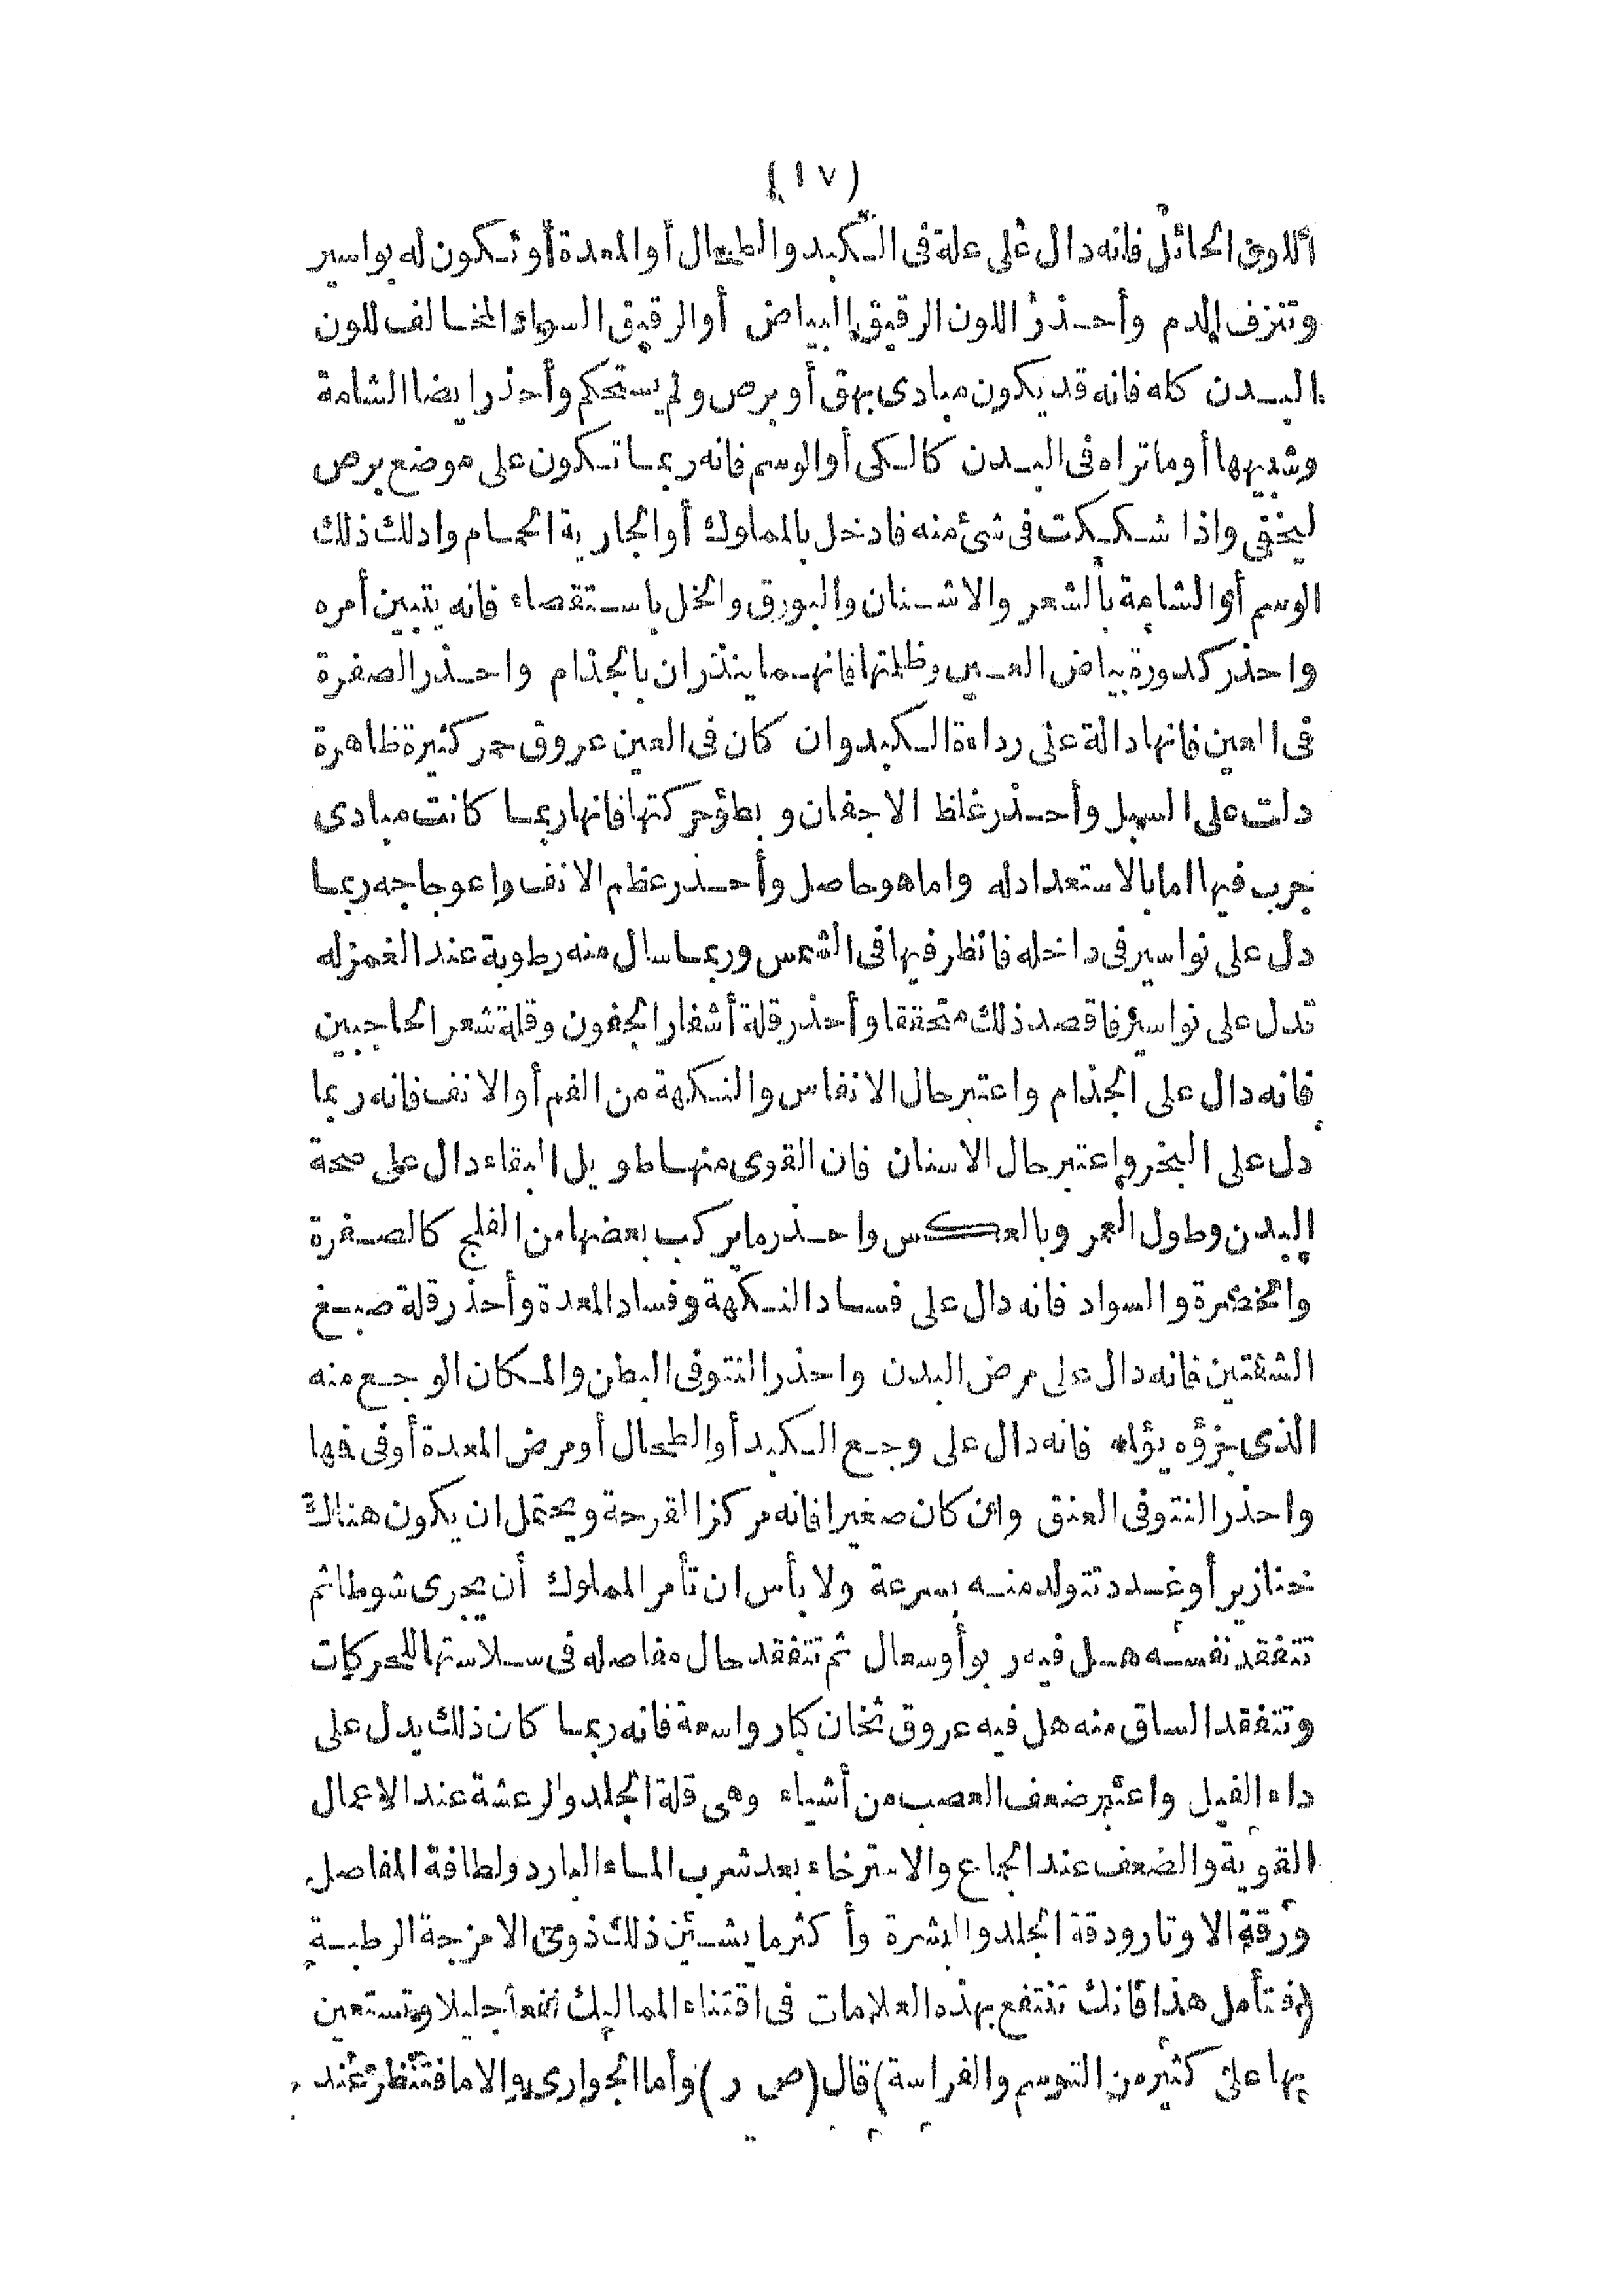 (١٧)
اللون الحائل فانه دال على علة فى الكبد والطحال أو المعدة أو تكون له بواسير
وتنزف الدم وأحذر اللون الرقيق البياض أو الرقيق السواد المخالف للون
البدن كله فانه قد يكون مبادى بهق أو برص ولم يستحكم وأحذر ايضا الشامة
وشبيهها أو ما تراه فى البدن كالكى أو الوسم فانه ربما تكون على موضع برص
ليخفى واذا شككت فى شئ منه فادخل بالمملوك أو الجارية الحمام وادلك ذلك
الوسم أو الشامة بالشعر والاشنان والبورق والخل باستقصاء فانه يتبين أمره
واحذر كدورة بياض العين وظلمتها فانهما ينذران بالجذام واحذر الصفرة
فى العين فانها دالة على رداءة الكبد وان كان فى العين عروق حمر كثيرة ظاهرة
دلت على السبل وأحذر غلظ الاجفان وبطؤ حركتها فانها ربما كانت مبادى
جرب فيها اما بالاستعداد له واما هو حاصل وأحذر عظم الانف واعوجاجه ربما
دل على نواسير فى داخله فانظر فيها فى الشمس وربما سال منه رطوبة عند الغمز له
تدل على نواسير فاقصد ذلك متحققا وأحذر قلة أشفار الجفون وقلة شعر الحاجبين
فانه دال على الجذام واعتبر حال الانفاس والنكهة من الفم أو الانف فانه ربما
دل على البخر واعتبر حال الاسنان فان القوى منها طويل البقاء دال على صحة
البدن وطول العمر وبالعكس واحذر ما يركب بعضها من الفلج كالصفرة
والخضرة والسواد فانه دال على فساد النكهة وفساد المعدة وأحذر قلة صبغ
الشفتين فانه دال على مرض البدن واحذر النتو فى البطن والمكان الوجع منه
الذى جزؤه يؤلم فانه دال على وجع الكبد أو الطحال أو مرض المعدة أو فى فها
واحذر النتو فى العنق وان كان صغيرا فانه مركز القرحة ويحتمل ان يكون هناك
خنازير أو غدد تتولد منه بسرعة ولا بأس ان تأمر المملوك أن يجرى شوطا ثم
تتفقد نفسه هل فيه ربو أو سعال ثم تتفقد حال مفاصله فى سلاستها للحركات
وتتفقد الساق منه هل فيه عروق ثخان كبار واسعة فانه ربما كان ذلك يدل على
داء الفيل واعتبر ضعف العصب من أشياء وهى قلة الجلد والرعشة عند الاعمال
القوية والضعف عند الجماع والاسترخاء بعد شرب الماء البارد ولطافة المفاصل
ورقة الاوتار ودقة الجلد والبشرة وأكثر ما يشين ذلك ذوى الامزجة الرطبة
(فتأمل هذا فانك تنتفع بهذه العلامات فى اقتناء المماليك نفعا جليلا وتستعين
بها على كثير من التوسم والفراسة) قال (ص ر) وأما الجوارى والاما فتنظر عند